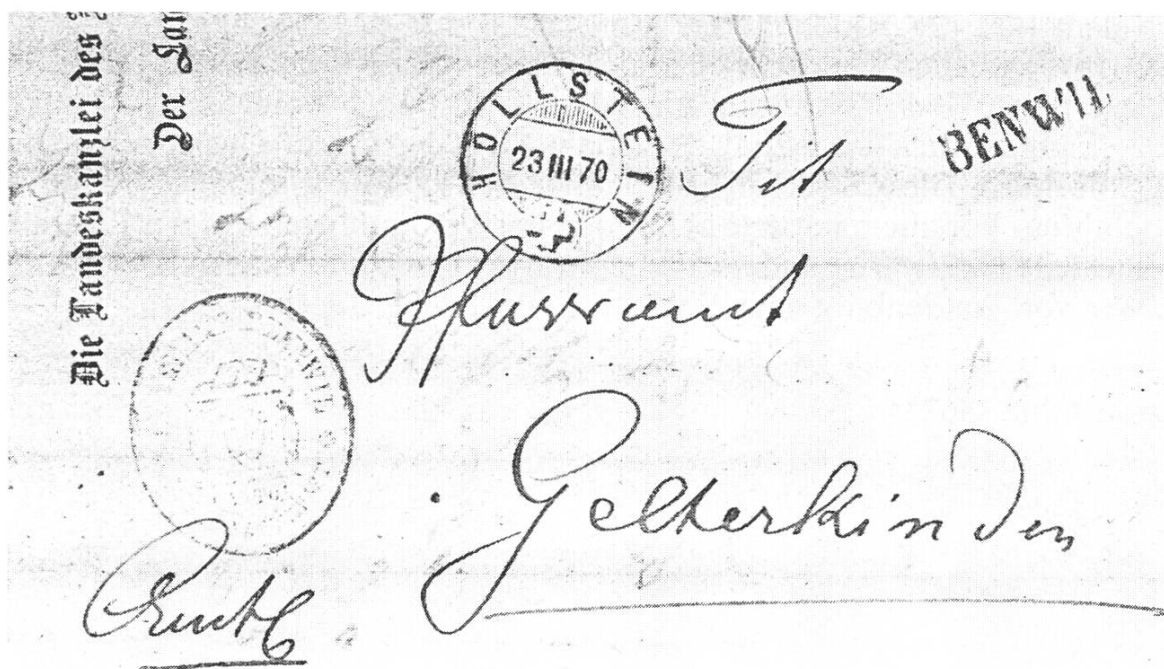 Die Landeskanzlei des
Der Lan
HOLLSTEIN
23 III 70
Tit
BENWIL
Pfarramt
Gelterkinden
Amtl